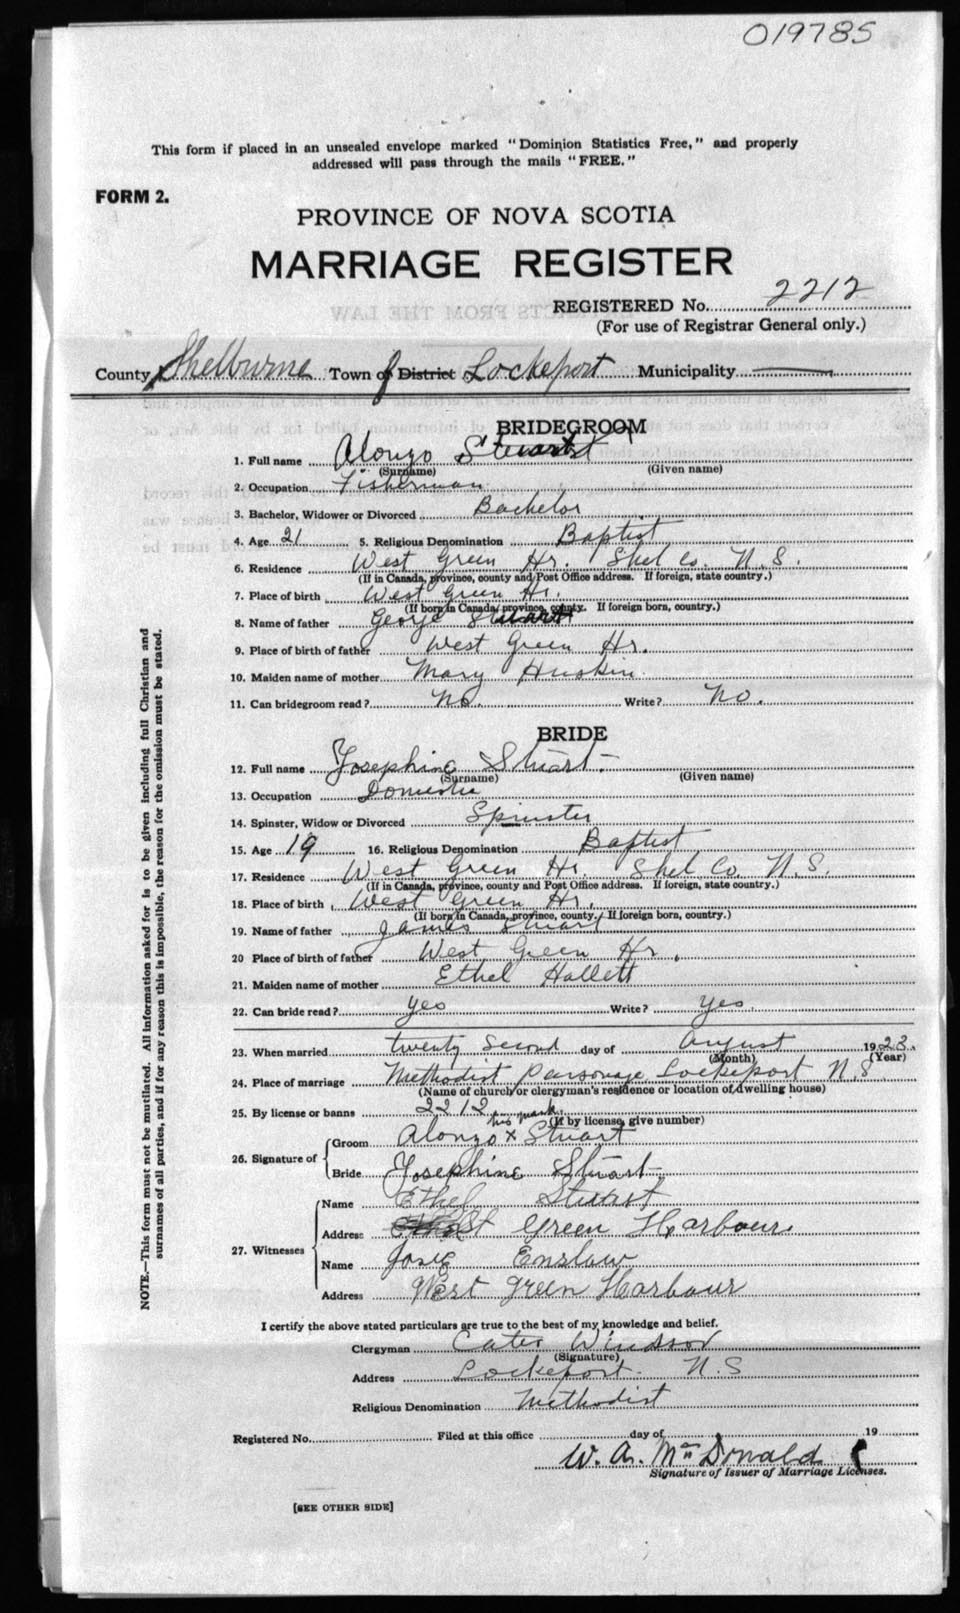 019785
This form if placed in an unsealed envelope marked "Dominion Statistics Free," and properly
addressed will pass through the mails "FREE."
FORM 2.
PROVINCE OF NOVA SCOTIA
MARRIAGE REGISTER
REGISTERED No. 2212
(For use of Registrar General only.)
County Shelburne Town of District Lockeport Municipality
BRIDEGROOM
1. Full name Alonzo Stuart
(Surname) (Given name)
2. Occupation Fisherman
3. Bachelor, Widower or Divorced Bachelor
4. Age 21 5. Religious Denomination Baptist
6. Residence West Green Hr. Shel Co. N.S.
(If in Canada, province, county and Post Office address. If foreign, state country.)
7. Place of birth West Green Hr.
(If born in Canada, province, county. If foreign born, country.)
8. Name of father George Stuart
9. Place of birth of father West Green Hr.
10. Maiden name of mother Mary Huskin
11. Can bridegroom read? No. Write? No.
BRIDE
12. Full name Josephine Stuart.
(Surname) (Given name)
13. Occupation Domestic
14. Spinster, Widow or Divorced Spinster
15. Age 19 16. Religious Denomination Baptist
17. Residence West Green Hr. Shel Co N.S.
(If in Canada, province, county and Post Office address. If foreign, state country.)
18. Place of birth West Green Hr.
(If born in Canada, province, county. If foreign born, country.)
19. Name of father James Stuart
20 Place of birth of father West Green Hr.
21. Maiden name of mother Ethel Hallett
22. Can bride read? Yes Write? Yes.
23. When married twenty second day of August 1923.
(Month) (Year)
24. Place of marriage Methodist Parsonage Lockeport N.S.
(Name of church or clergyman's residence or location of dwelling house)
25. By license or banns 2212
(If by license, give number)
his mark
26. Signature of Groom Alonzo x Stuart
Bride Josephine Stuart
27. Witnesses Name Ethel Stuart
Address St Green Harbour
Name Josie Enslow
Address West Green Harbour
I certify the above stated particulars are true to the best of my knowledge and belief.
Clergyman Cater Windsor
(Signature)
Address Lockeport. N.S
Religious Denomination Methodist
Registered No. Filed at this office day of 19
W. A. MacDonald
Signature of Issuer of Marriage Licenses.
[SEE OTHER SIDE]
NOTE.—This form must not be mutilated. All information asked for is to be given including full Christian and
surnames of all parties, and if for any reason this is impossible, the reason for the omission must be stated.